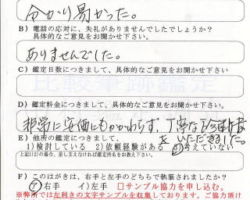 分かり易かった。
B) 電話の応対に、失礼がありませんでしたでしょうか?
具体的なご意見をお聞かせ下さい。
ありませんでした。
C) 鑑定日数につきまして、具体的なご意見をお聞かせ下さい。
D) 鑑定料金につきまして、具体的なご意見をお聞かせ下さい。
非常に安価にもかかわらず、丁寧な
をいただきました。
E) 他所の鑑定につきまして、
1)検討している 2)依頼経験がある 3)考えていない
F) このはがきは、右手左手どちらで執筆されましたか?
右手 イ)左手 □サンプル協力を申し込む。
※弊所では左利きの文字サンプルを収集しております。ご協力頂け